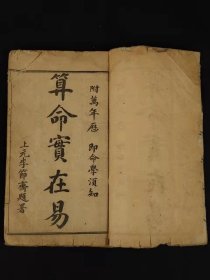 附萬年曆 即命學須知
算命實在易
上元李節齋題署